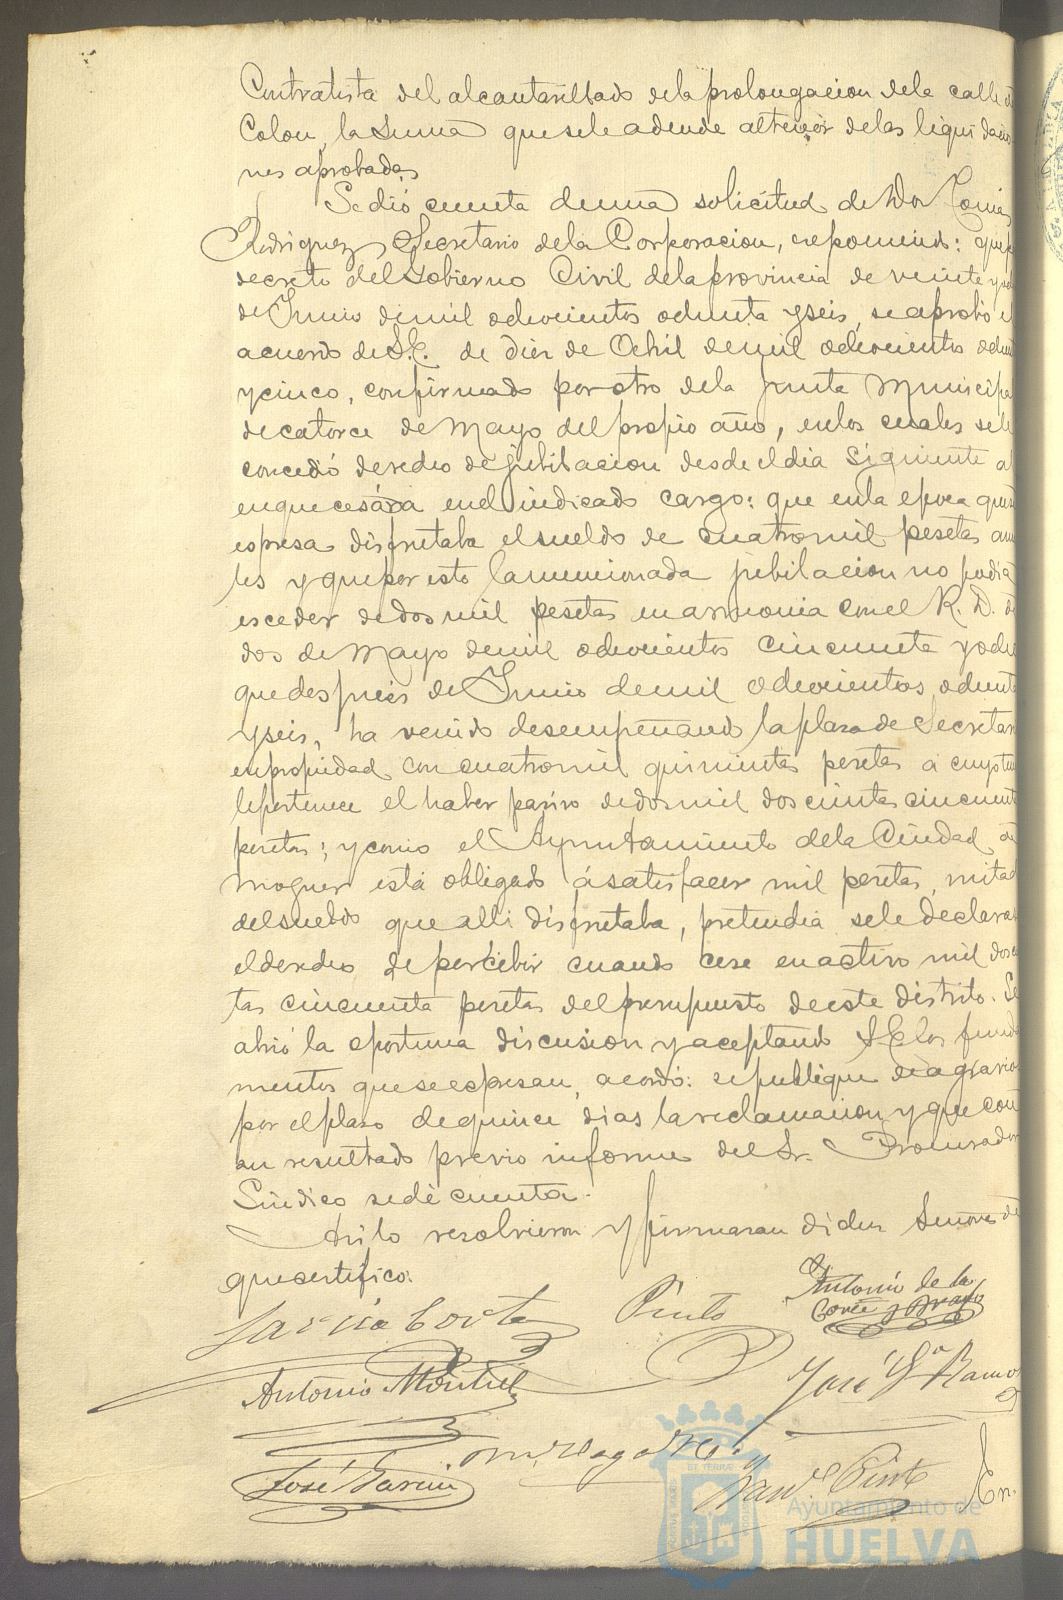 Contratista del alcantarillado dela prolongacion dela calle de
Colon, la suma que se le adeude alterior delas liquidacio
nes aprobadas
Se dió cuenta de una solicitud de Don Tomás
Rodriguez, Secretario dela Corporacion, esponiendo: que
decreto del Gobierno Civil dela provincia de veinte y
de Junio de mil ochocientos ochenta y seis, se aprobó el
acuerdo de S.E. de diez de Abril de mil ochocientos ochenta
y cinco, confirmado por otro dela Junta Municipal
de catorce de Mayo del propio año, en los cuales se le
concedió derecho de jubilacion desde el dia siguiente al
en que cesára en el indicado cargo: que en la epoca que se
espresa disfrutaba el sueldo de cuatro mil pesetas anua
les y que por esto la mencionada jubilacion no podia
esceder de dos mil pesetas en armonia con el R. D. de
dos de Mayo de mil ochocientos cincuenta y ocho
que despues de Junio de mil ochocientos ochenta
y seis, ha venido desempeñando la plaza de Secretario
en propiedad con cuatro mil quinientas pesetas á cuyo
le pertenece el haber pasivo de dos mil doscientas cincuenta
pesetas; y como el Ayuntamiento dela Ciudad de
Moguer está obligado á satisfacer mil pesetas, mitad
del sueldo que alli disfrutaba, pretendia se le declarase
el derecho de percibir cuando cese en activo mil doscien
tas cincuenta pesetas del presupuesto de este distrito. Se
abrió la oportuna discusion y aceptando S.E. los funda
mentos que se espresan, acordó: se publique de agravios
por el plazo de quince dias la reclamacion y que con
su resultado previo informe del Sr. Procurador
Sindico se dé cuenta.
Asi lo resolvieron y firmaran dichos Señores de
que certifico.
Garcia Cortes Pinto Antonio de la
Corte y Bravo
Antonio Montiel José Gª Ramos
José Garcia
Manl Pinto
En.
Ayuntamiento de
HUELVA